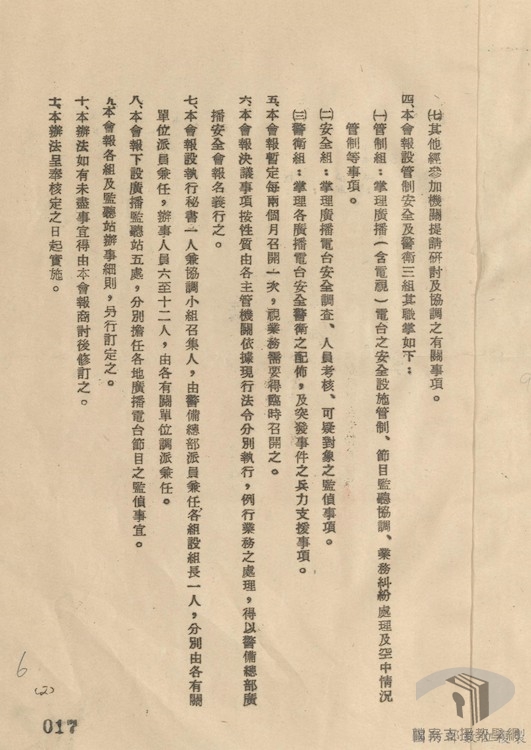 ㈦其他經參加機關提請研討及協調之有關事項。
四、本會報設管制安全及警衛三組其職掌如下：
㈠管制組：掌理廣播（含電視）電台之安全設施管制、節目監聽協調、業務糾紛處理及空中情況
管制等事項。
㈡安全組：掌理廣播電台安全調查、人員考核、可疑對象之監偵事項。
㈢警衛組：掌理各廣播電台安全警衛之配佈，及突發事件之兵力支援事項。
五、本會報暫定每兩個月召開一次，視業務需要得臨時召開之。
六、本會報決議事項按性質由各主管機關依據現行法令分別執行，例行業務之處理，得以警備總部廣
播安全會報名義行之。
七、本會報設執行秘書一人兼協調小組召集人，由警備總部派員兼任，各組設組長一人，分別由各有關
單位派員兼任，辦事人員六至十二人，由各有關單位調派兼任。
八、本會報下設廣播監聽站五處，分別擔任各地廣播電台節目之監偵事宜。
九、本會報各組及監聽站辦事細則，另行訂定之。
十、本辦法如有未盡事宜得由本會報商討後修訂之。
十一、本辦法呈奉核定之日起實施。
6
(2)
017
檔案支援教學網